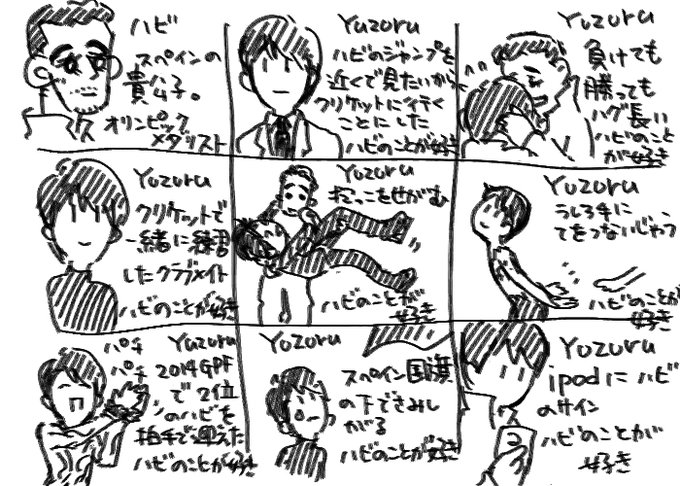 ハビ
スペインの
貴公子。
オリンピック
メダリスト
Yuzuru
ハビのジャンプを
近くで見たいから
クリケットに行く
ことにした
ハビのことが好き
Yuzuru
負けても
勝っても
ハグ長い
ハビのこと
が好き
Yuzuru
クリケットで
一緒に練習
したクラブメイト
ハビのことが好き
Yuzuru
抱っこをせがむ
ハビのことが
好き
Yuzuru
うしろ手に
てをつないじゃう
ハビのことが
好き
パチ
パチ
Yuzuru
2014GPF
で2位
のハビを
拍手で迎えた
ハビのことが好き
Yuzuru
スペイン国旗
の下でさみし
がる
ハビのことが好き
Yuzuru
ipodにハビ
のサイン
ハビのことが
好き